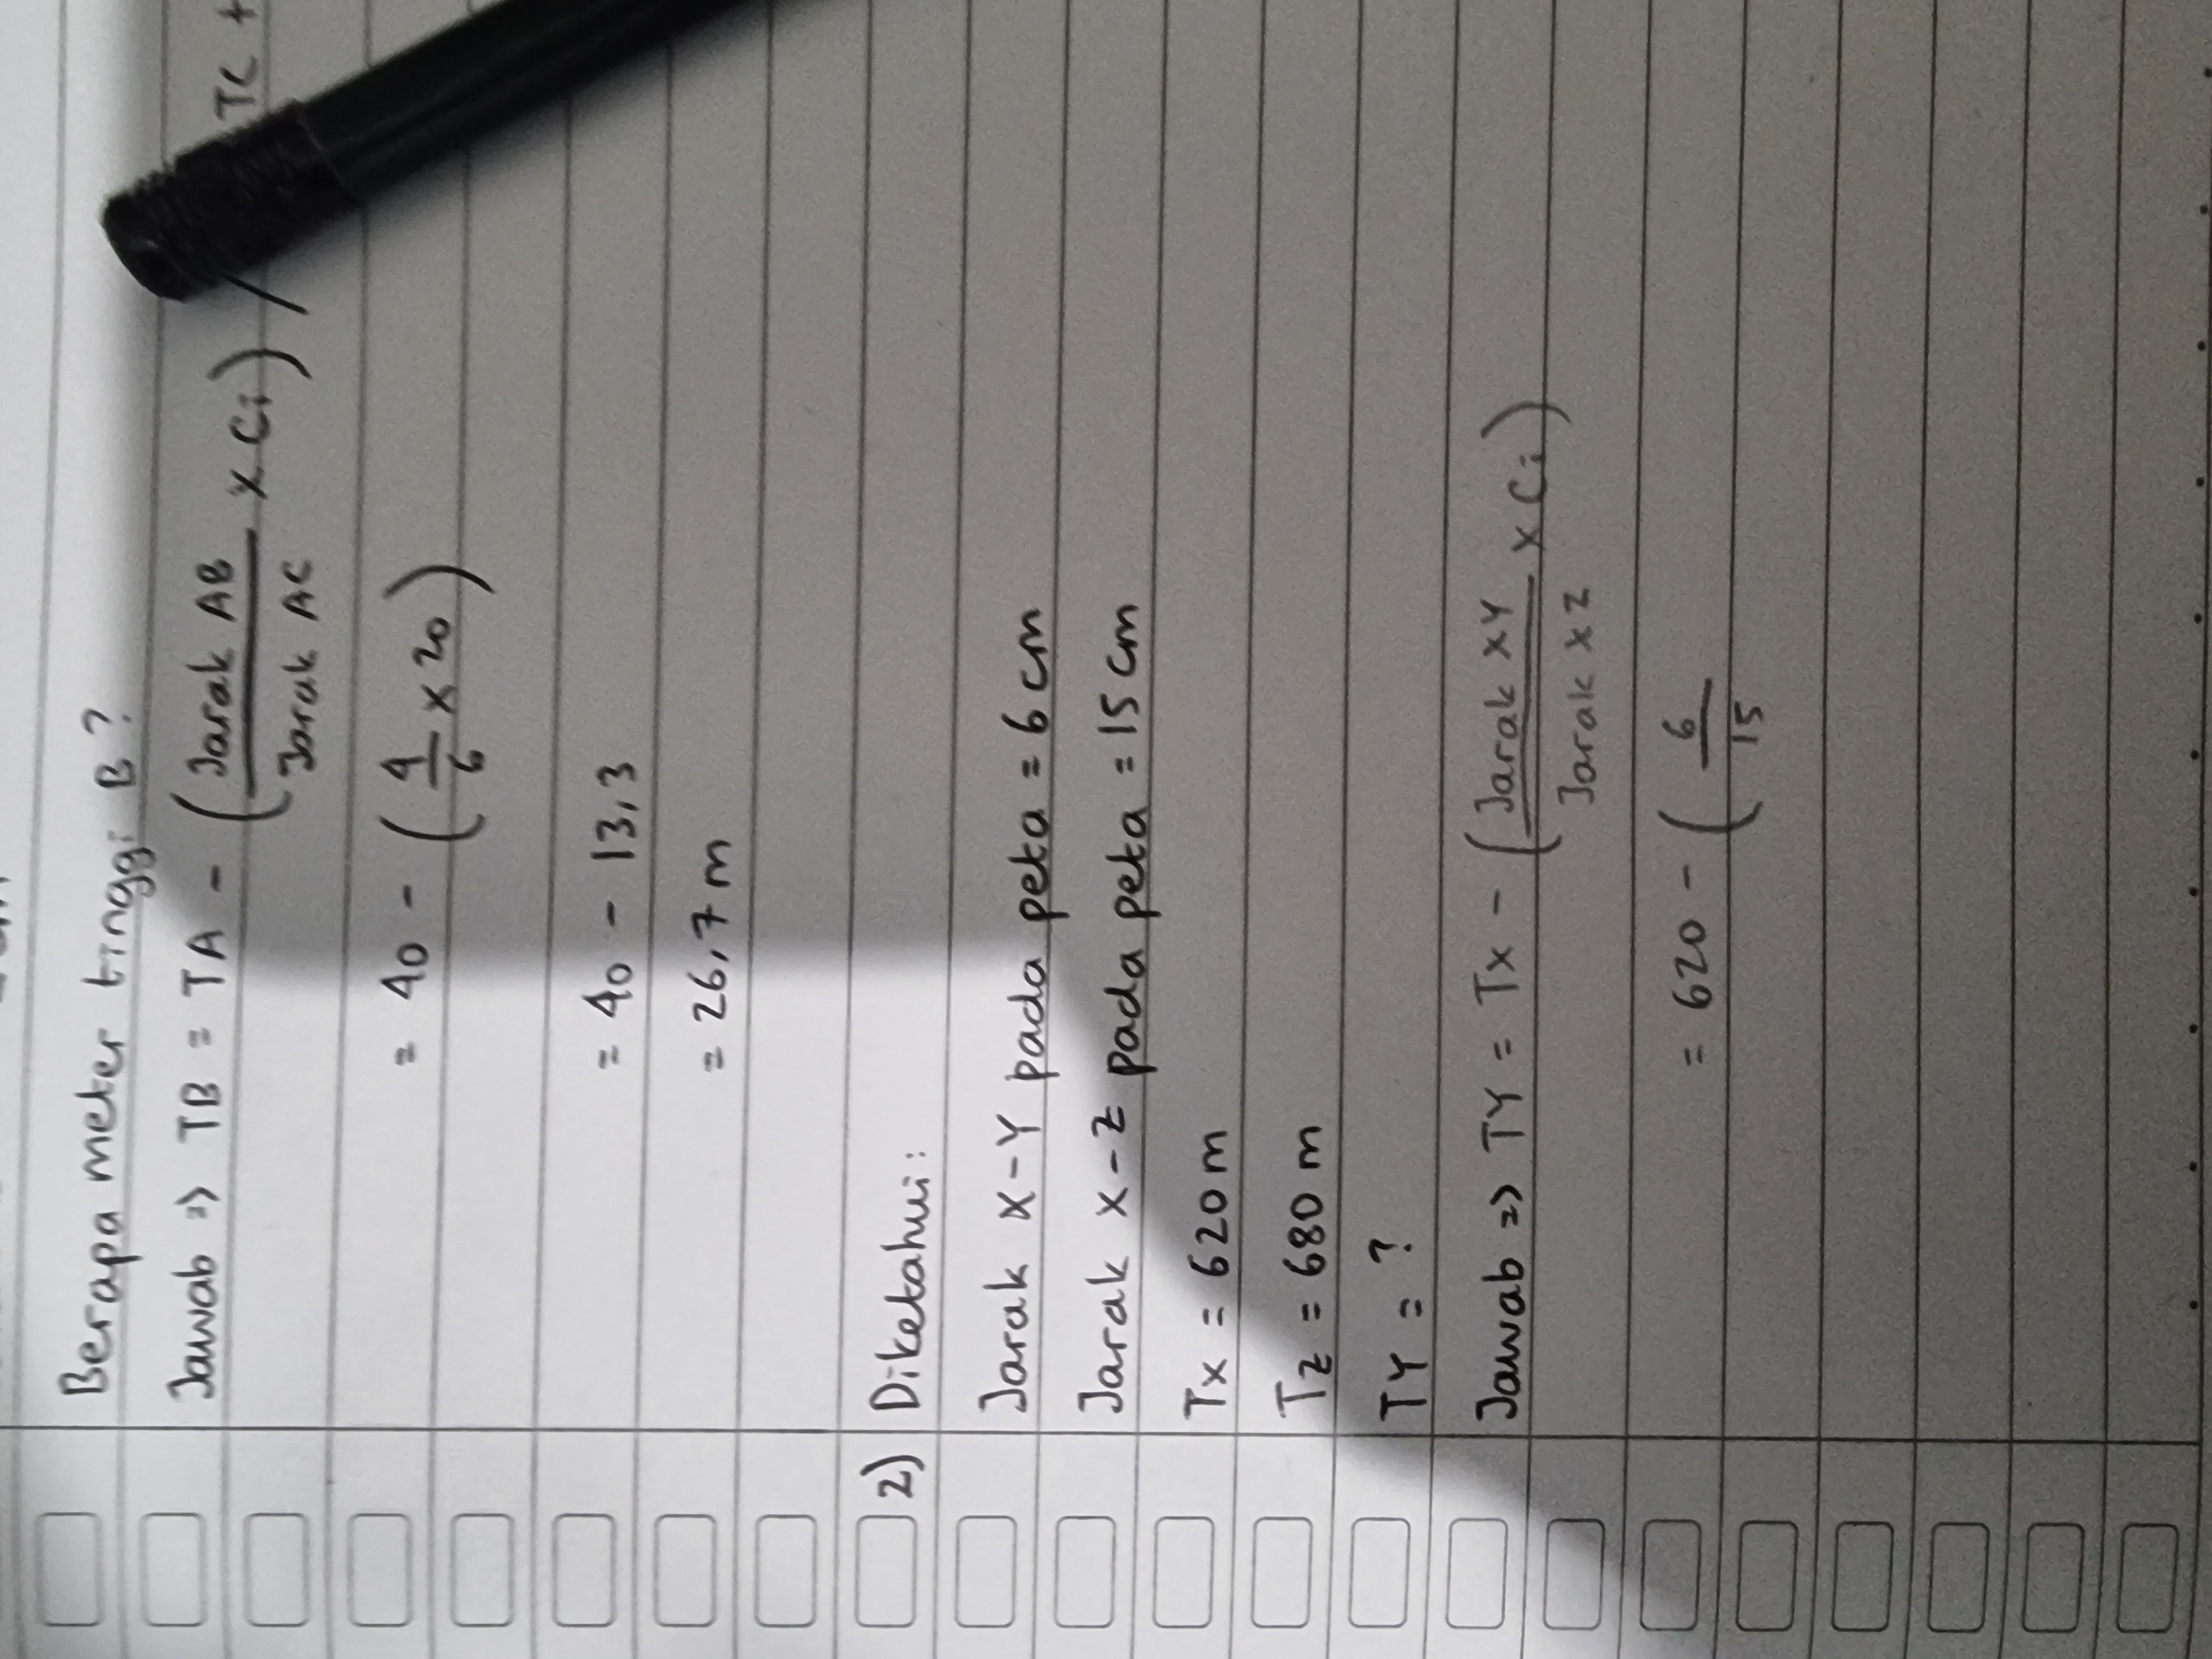 Berapa meter tinggi B?
Jawab => TB = TA - ( Jarak AB / Jarak AC x Ci ) / TC +
= 40 - ( 4/6 x 20 )
= 40 - 13,3
= 26,7 m
2) Diketahui:
Jarak X-Y pada peta = 6 cm
Jarak X-Z pada peta = 15 cm
Tx = 620 m
Tz = 680 m
TY = ?
Jawab => TY = Tx - ( Jarak XY / Jarak XZ x Ci )
= 620 - ( 6/15